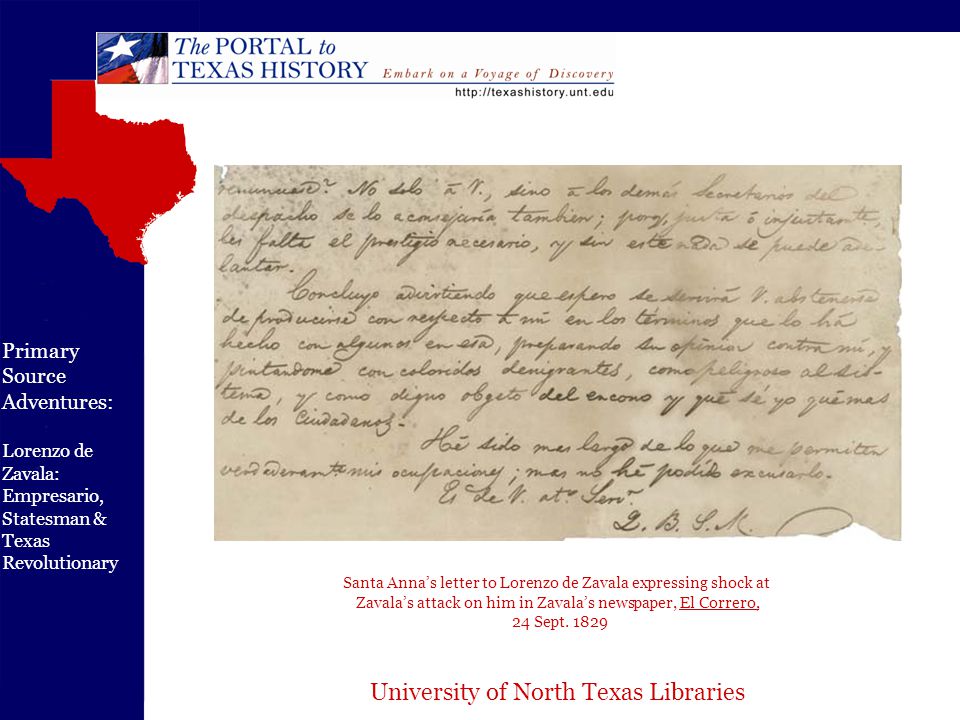 The PORTAL to
TEXAS HISTORY Embark on a Voyage of Discovery
http://texashistory.unt.edu
renunciase? No solo á V., sino á los demás Secretarios del
despacho se lo aconsejaría tambien; porq. justa ó injustamte,
les falta el prestigio necesario, y sin este nada se puede ade-
lantar.
Concluyo advirtiendo que espero se servirá V. abstenerse
de producirse con respecto á mi en los términos que lo há
hecho con algunos en esa, preparando su opinion contra mi, y
pintandome con coloridos denigrantes, como peligroso al sis-
tema, y como digno obgeto del encono y qué sé yo qué mas
de los Ciudadanos.
Hé sido mas largo de lo que me permiten
verdaderamte mis ocupaciones; mas no hé podido excusarlo.
Es de V. ato. Servr.
Q. B. S. M.
Primary
Source
Adventures:
Lorenzo de
Zavala:
Empresario,
Statesman &
Texas
Revolutionary
Santa Anna's letter to Lorenzo de Zavala expressing shock at
Zavala's attack on him in Zavala's newspaper, El Correro,
24 Sept. 1829
University of North Texas Libraries